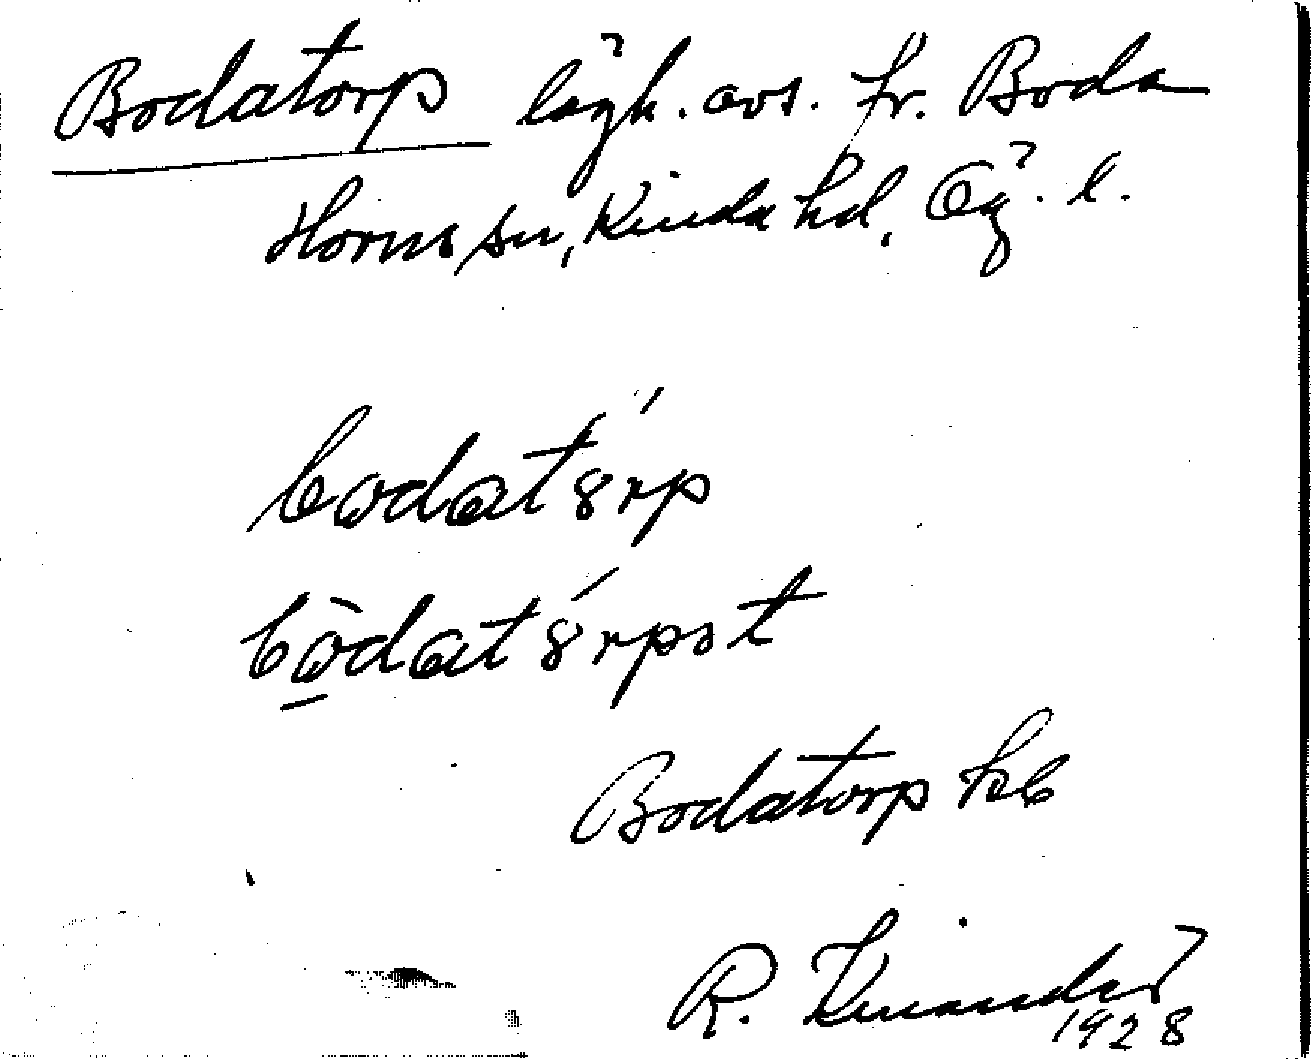 Bodatorp lägh. avs. fr. Boda
Horns sn, Kinda hd, Ög. l.
bodatrp
bodatrpt
Bodatorp kb
R. Kinander
1928